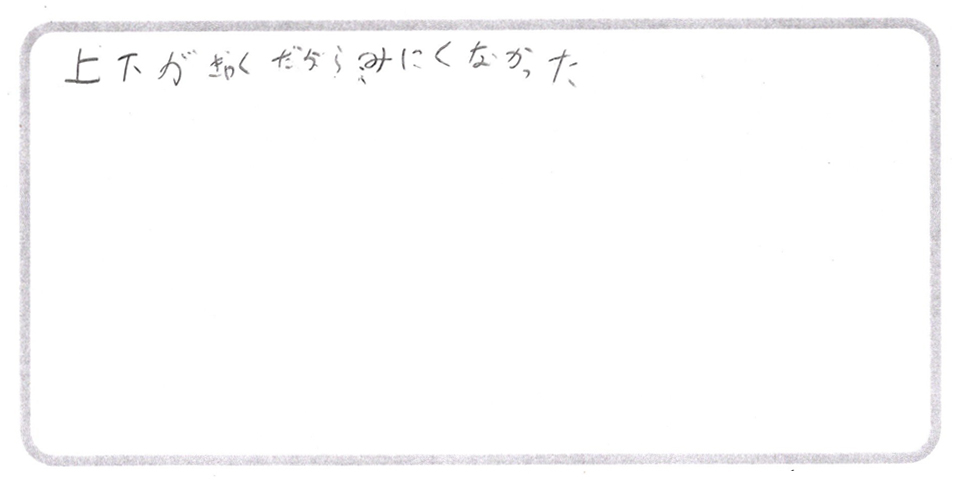 上下がぎゃくだからみにくなかった